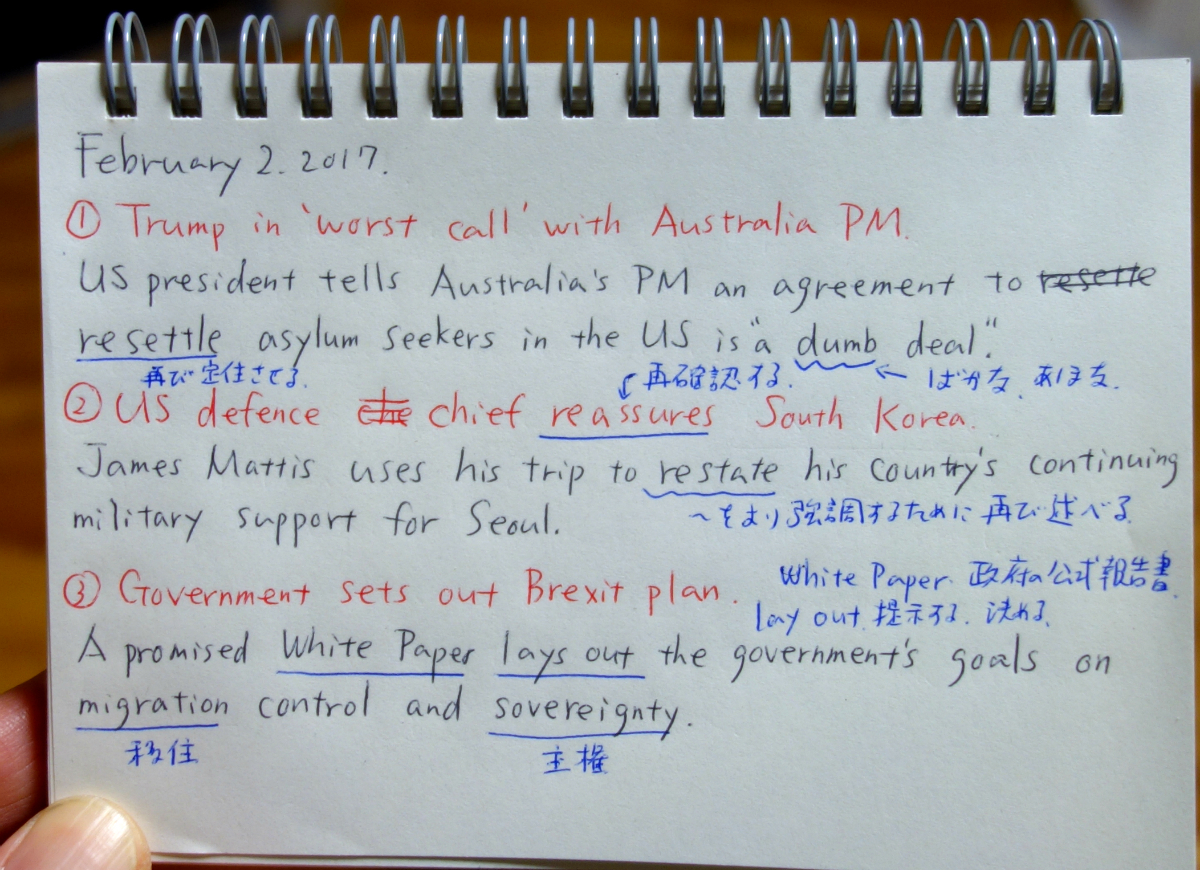 February 2. 2017.
① Trump in 'worst call' with Australia PM.
US president tells Australia's PM an agreement to resette
resettle asylum seekers in the US is "a dumb deal."
再び定住させる. 再確認する. ← ばかな、あほな.
② US defence che chief reassures South Korea.
James Mattis uses his trip to restate his country's continuing
military support for Seoul. ~をより強調するために再び述べる
③ Government sets out Brexit plan. White Paper 政府の公式報告書.
lay out 提示する. 決める.
A promised White Paper lays out the government's goals on
migration control and sovereignty.
移住 主権